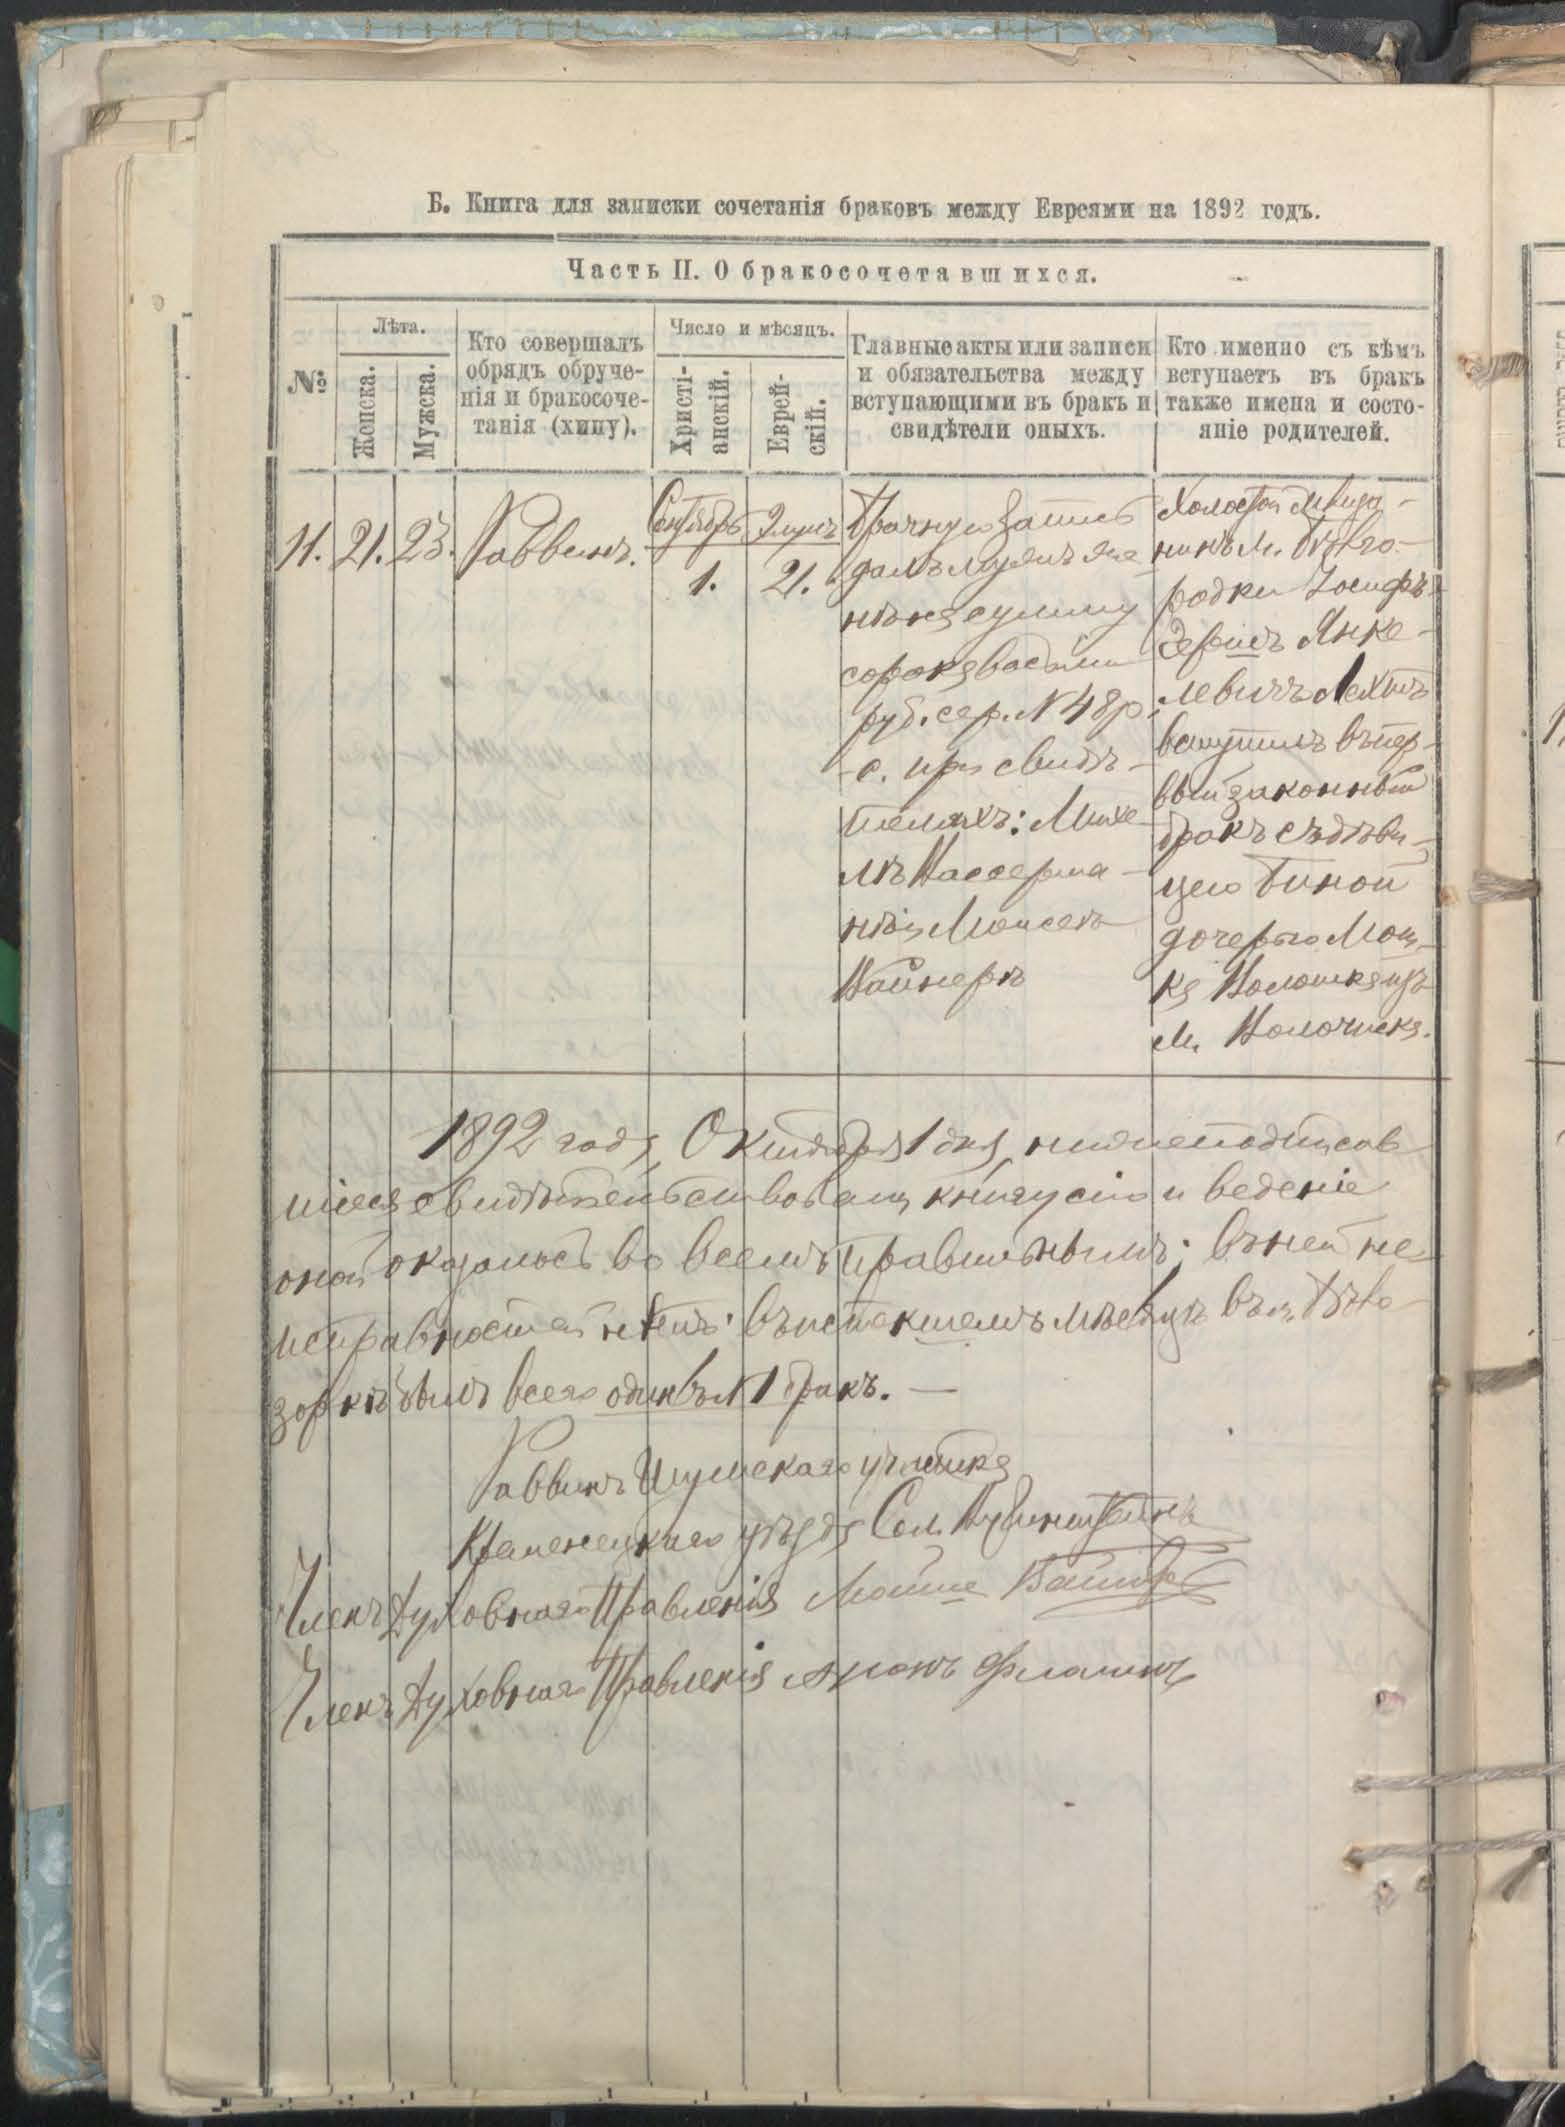 Б. Книга для записки сочетанія браковъ между Евреями на 1892 годъ.
Часть II. О бракосочетавшихся.
№
Лѣта.
Женска.
Мужска.
Кто совершалъ
обрядъ обруче-
нія и бракосоче-
танія (хипу).
Число и мѣсяцъ.
Христі-
анскій.
Еврей-
скій.
Главные акты или записи
и обязательства между
вступающими въ бракъ и
свидѣтели оныхъ.
Кто именно съ кѣмъ
вступаетъ въ бракъ
также имена и состо-
яніе родителей.
11.
21.
23.
Раввинъ.
Сентябрь
1.
Элулъ
21.
Брачную запись
далъ мужъ же
нѣ на сумму
сорокъ восемь
руб. сер. N 48 р.
с. при свидѣ-
теляхъ: Михе
лѣ Вассерма-
нѣ и Моисеѣ
Вайнерѣ
Холостой
никъ м. Бѣлго-
родки Іосифъ
Гершъ Янке-
левичъ
вступилъ въ пер-
вый законный
бракъ съ дѣви-
цею Биной
дочерью Мош-
ка Волошка изъ
м. Волочиска.
1892 года, Октября 1 дня, нижеподписав
шіеся свидѣтельствовали книгу сію и веденіе
оной оказалось во всемъ правильнымъ; въ ней не
исправностей нѣтъ. въ истекшемъ мѣсяцѣ въ м. Бѣло-
зоркѣ былъ всего одинъ N 1 бракъ. —
Раввинъ Шумскаго участка
Кременецкаго уѣзда Сол.
Членъ Духовнаго Правленія Мойше
Членъ Духовнаго Правленія